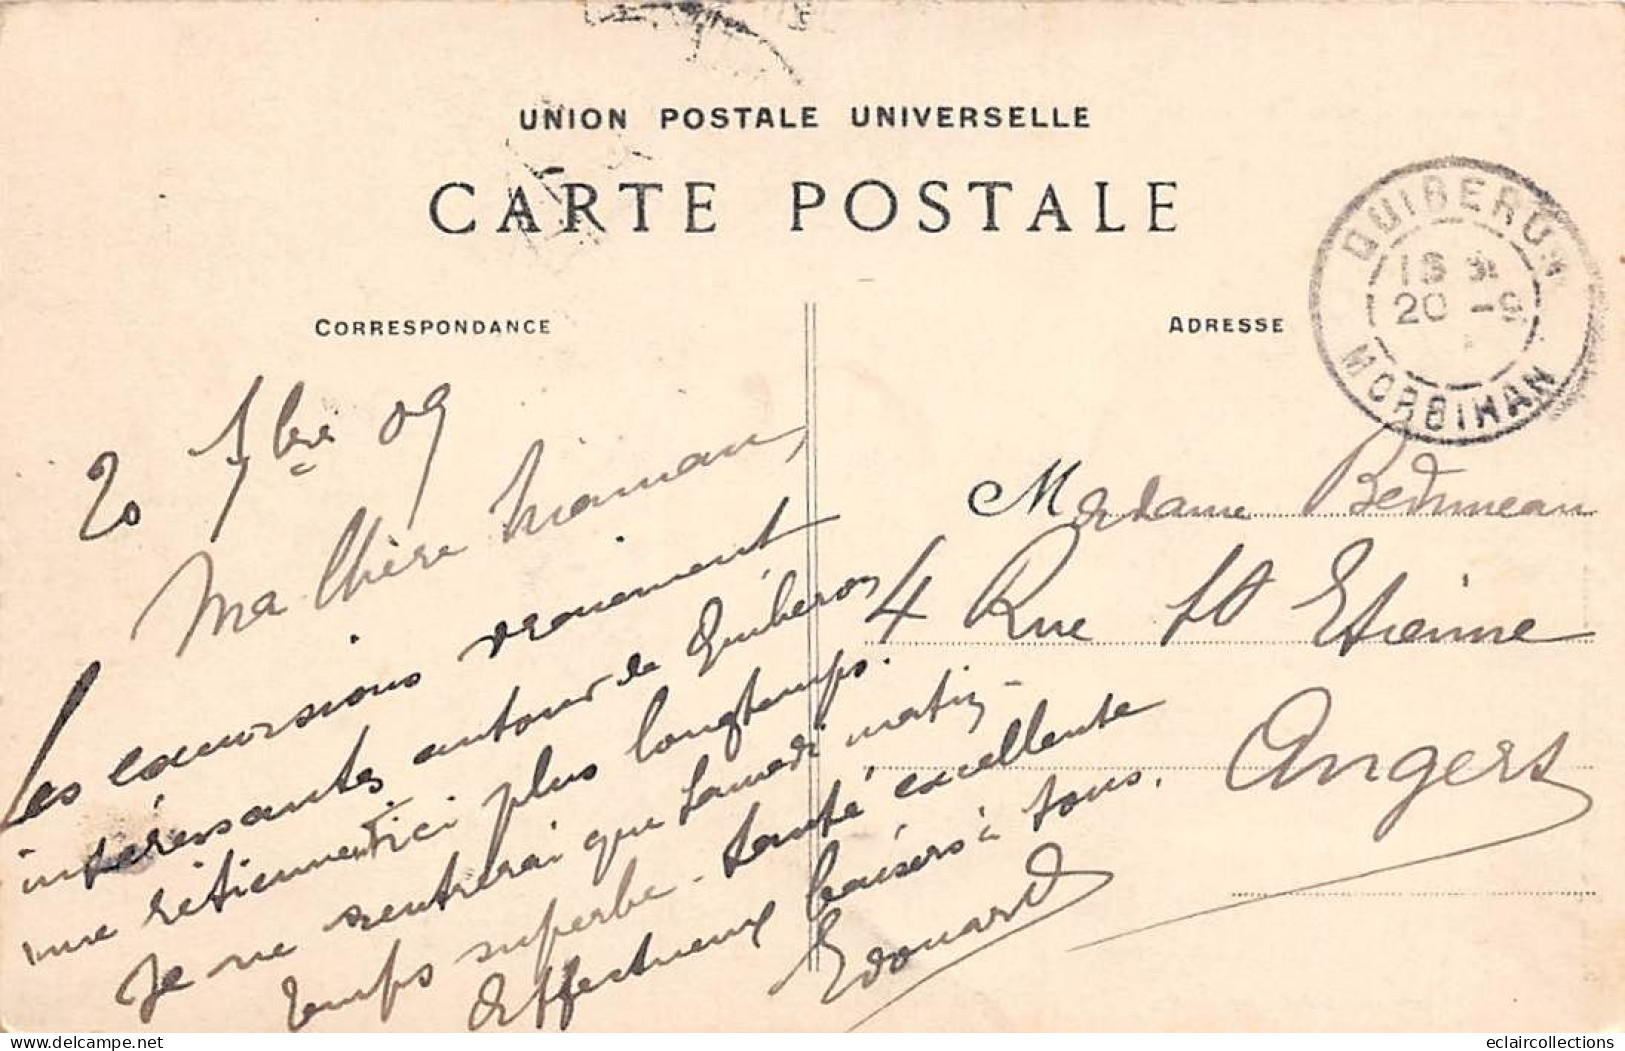 UNION POSTALE UNIVERSELLE
CARTE POSTALE
CORRESPONDANCE
ADRESSE
QUIBERON
20 -9
MORBIHAN
20 7bre 09
Ma Chère Maman,
Les excursions vraiment
intéressantes autour de Quiberon
me retiennent ici plus longtemps.
Je ne rentrerai que samedi matin -
temps superbe - santé excellente
Affectueux baisers à tous.
Edouard
Madame Beduneau
4 Rue St Etienne
Angers
www.delcampe.net
eclaircollections